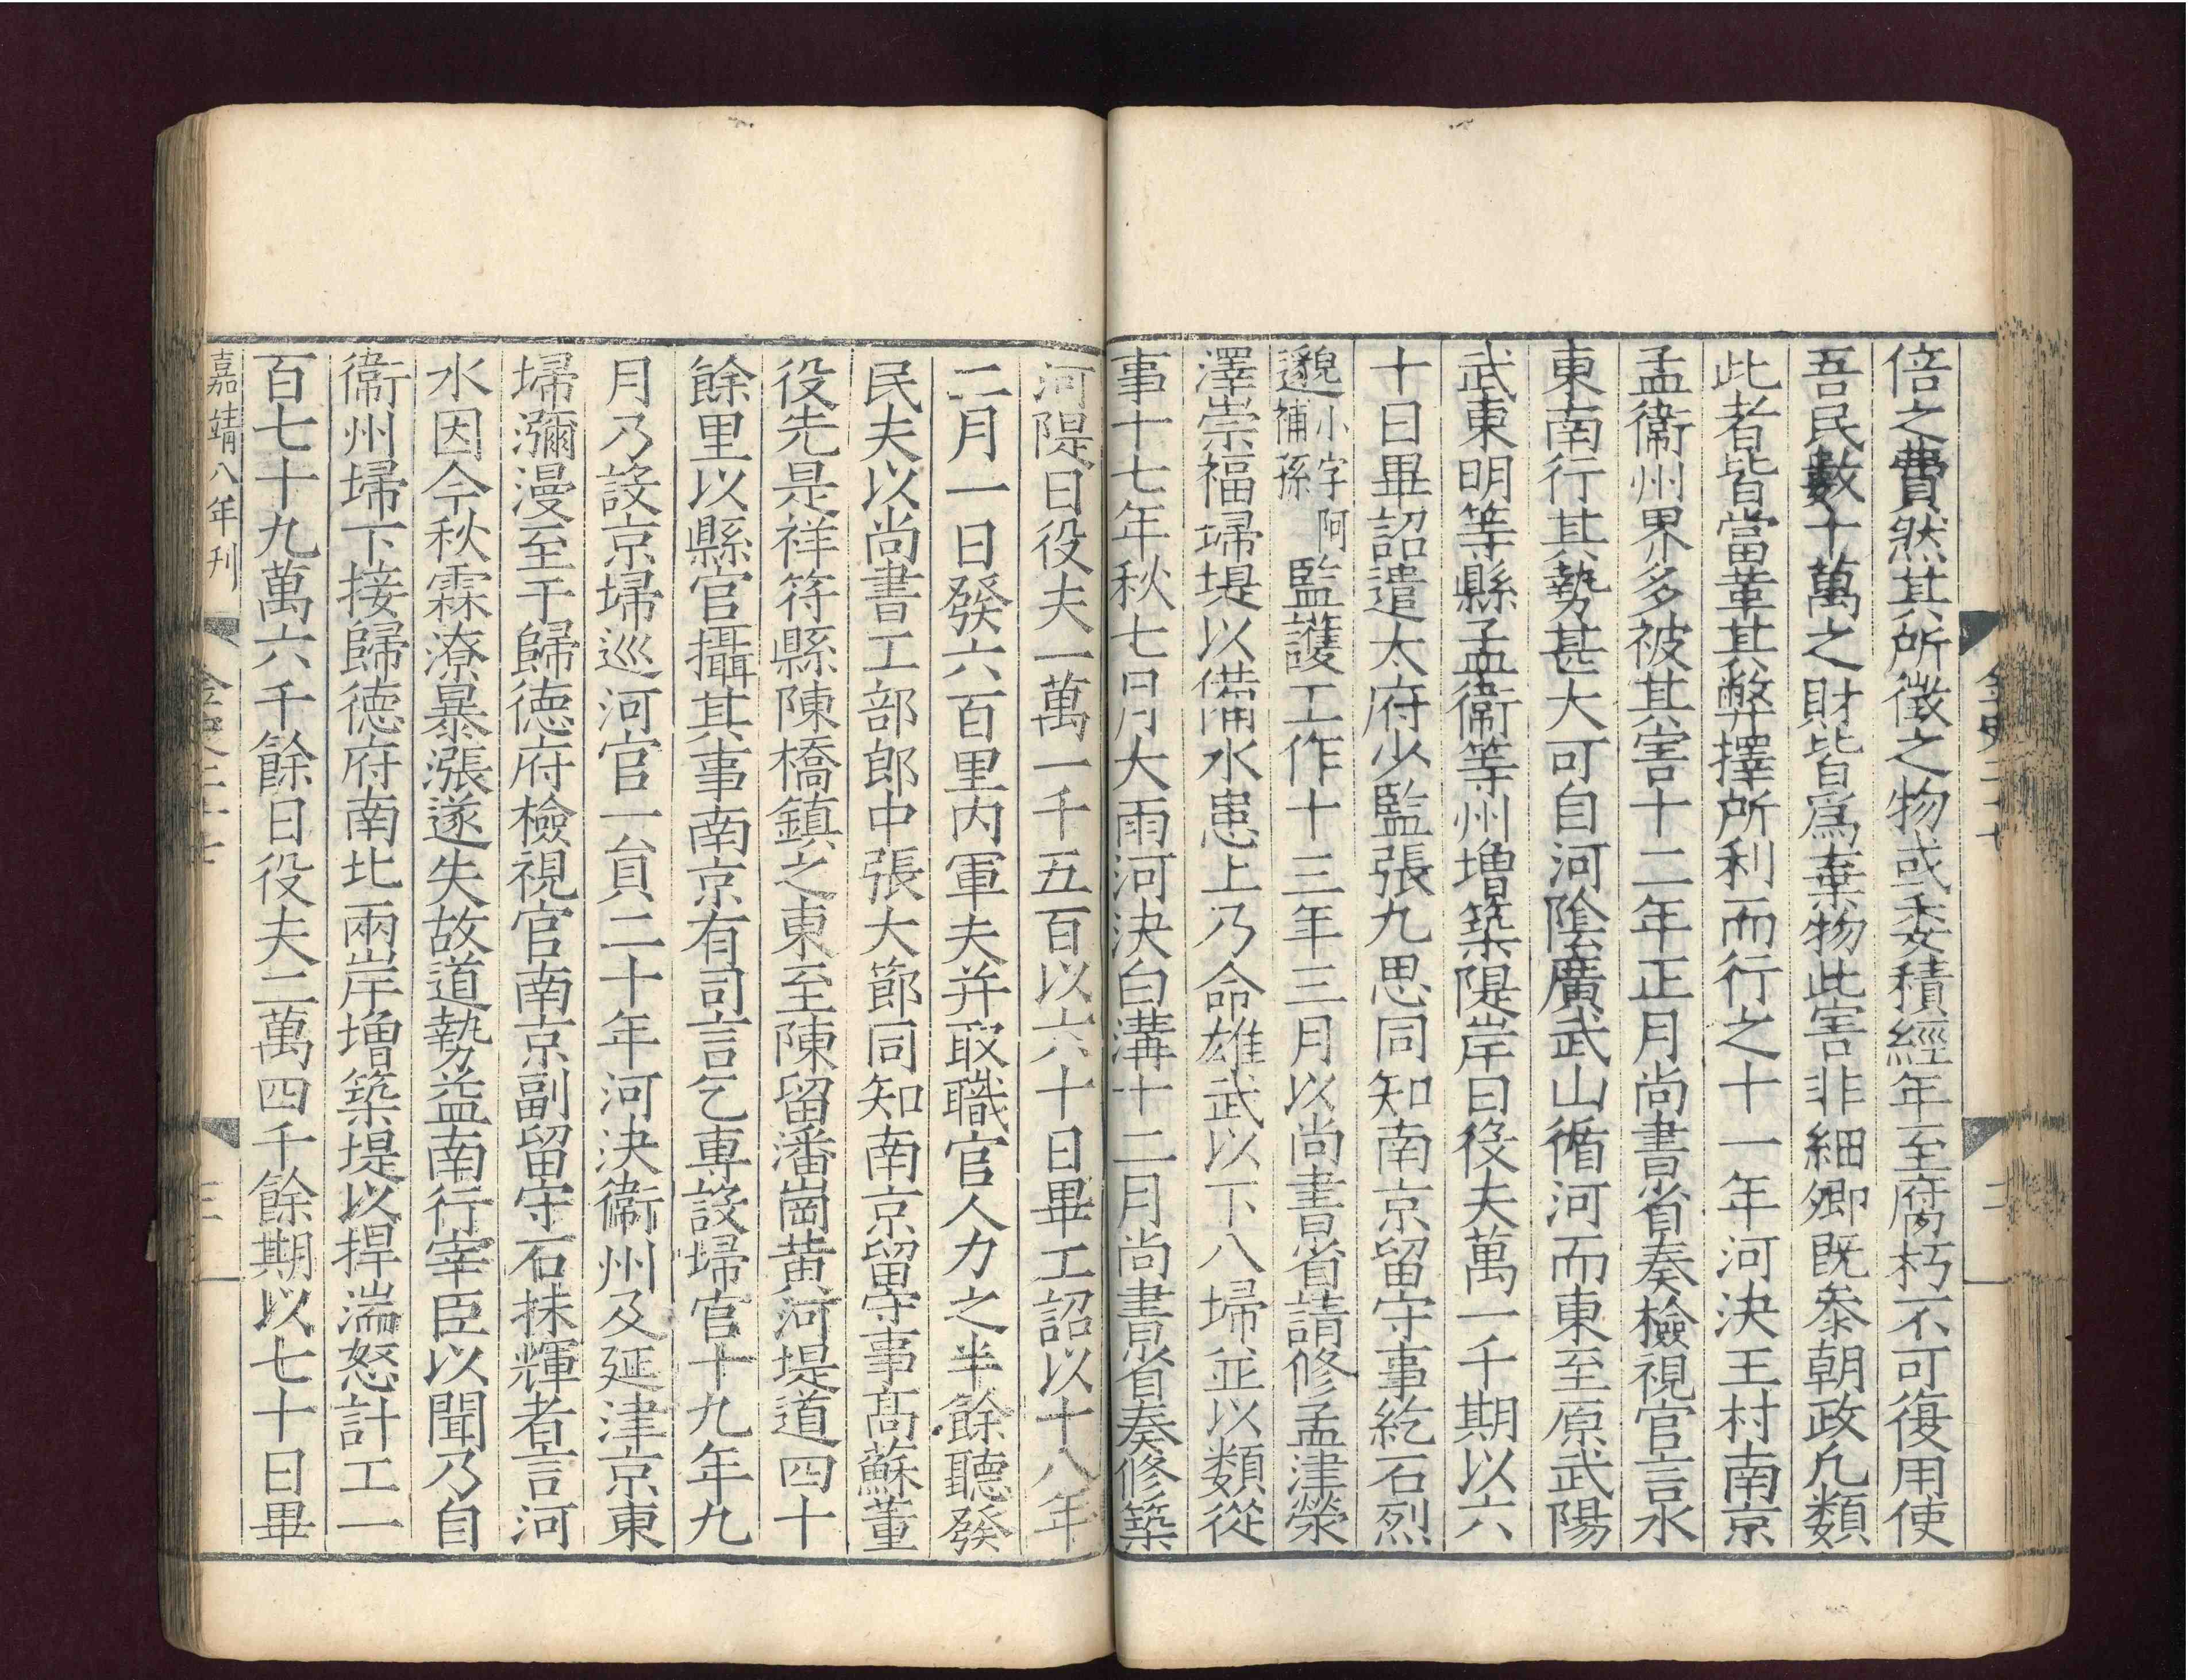 倍之費然其所徵之物或委積經年至腐朽不可復用使
吾民數十萬之財皆爲棄物此害非細卿既參朝政凡類
此者皆當革其弊擇所利而行之十一年河決王村南京
孟衞州界多被其害十二年正月尚書省奏檢視官言水
東南行其勢甚大可自河陰廣武山循河而東至原武陽
武東明等縣孟衞等州增築隄岸日役夫萬一千期以六
十日畢詔遣太府少監張九思同知南京留守事紇石烈
邈小字阿補孫監護工作十三年三月以尚書省請修孟津滎
澤崇福埽堤以備水患上乃命雄武以下八埽並以類從
事十七年秋七月大雨河決白溝十二月尚書省奏修築
河隄日役夫一萬一千五百以六十日畢工詔以十八年
二月一日發六百里内軍夫并取職官人力之半餘聽發
民夫以尚書工部郎中張大節同知南京留守事高蘇董
役先是祥符縣陳橋鎮之東至陳留潘崗黄河堤道四十
餘里以縣官攝其事南京有司言乞專設埽官十九年九
月乃設京埽巡河官一員二十年河決衞州及延津京東
埽瀰漫至于歸德府檢視官南京副留守石抹輝者言河
水因今秋霖潦暴漲遂失故道勢益南行宰臣以聞乃自
衞州埽下接歸德府南北兩岸增築堤以捍湍怒計工一
百七十九萬六千餘日役夫二萬四千餘期以七十日畢
嘉靖八年刊
金史二十七
三